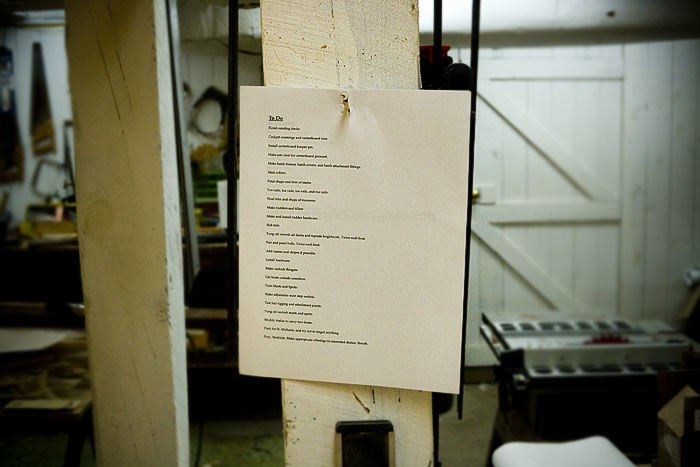 To Do
Finish sanding decks.
Cockpit coamings and centerboard trim.
Install centerboard keeper pin.
Make jam cleat for centerboard pennant.
Make hatch frames, hatch covers, and hatch attachment fittings.
Mast collars.
Final shape and trim of stems.
Toe rails, toe rails, toe rails, and toe rails.
Final trim and shape of transoms
Make rudders and tillers
Make and install rudder hardware.
Rub rails.
Tung oil varnish all decks and topside brightwork. Twice each boat.
Fair and paint hulls. Twice each boat.
Add names and stripes if possible.
Install hardware.
Make oarlock thingies.
Get boats outside somehow.
Trim Masts and Sprits.
Make adjustable mast step sockets.
Test sail rigging and attachment points.
Tung oil varnish masts and sprits.
Modify trailer to carry two boats.
Pack for St. Michaels, and try not to forget anything.
Pray. Meditate. Make appropriate offerings to interested deities. Breath.